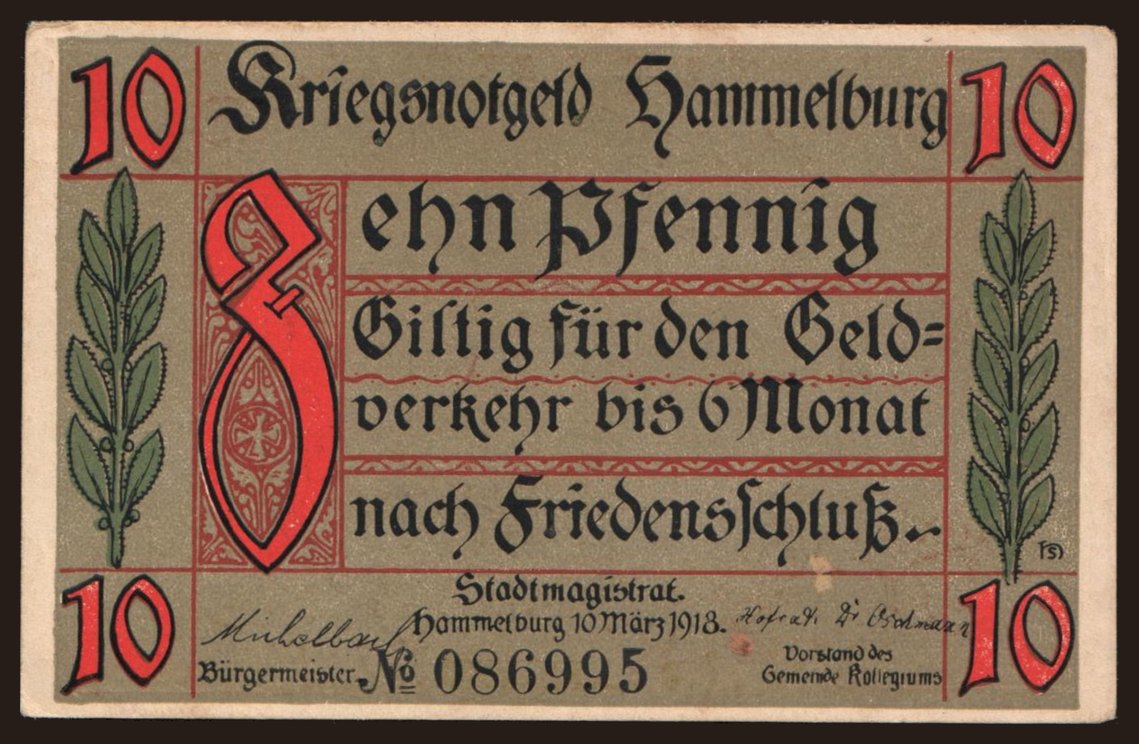 10 Kriegsnotgeld Hammelburg 10
Zehn Pfennig
Giltig für den Geld=
verkehr bis 6 Monat
nach Friedensschluß.
FS
10 Stadtmagistrat. 10
Hammelburg 10 März 1918.
Michelbach Hofrat Dr
Bürgermeister. No 086995
Vorstand des
Gemeinde Kollegiums